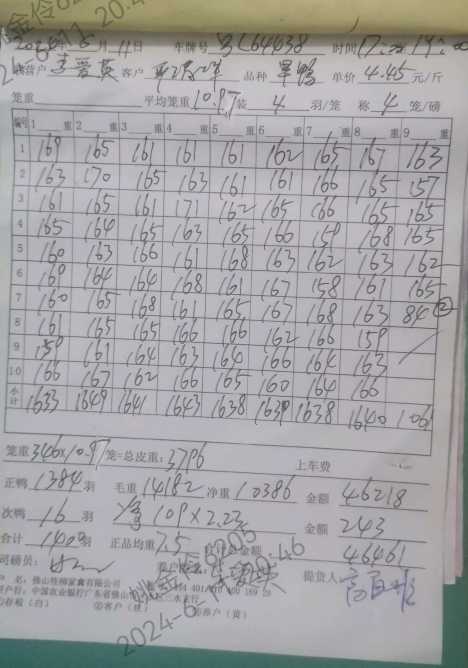 2024年6月11日 车牌号 粤CL64438 时间
供货户 李爱英 客户 品种 旱鸭 单价 4.45 元/斤
笼重 平均笼重 10.97 装 4 羽/笼 称 4 笼/磅
编号 1 重 2 重 3 重 4 重 5 重 6 重 7 重 8 重 9 重
1 169 165 161 161 161 162 165 167 163
2 163 170 165 163 161 161 166 165 157
3 161 165 161 171 162 165 166 165 165
4 165 164 165 163 165 160 159 168 165
5 160 163 166 161 168 163 162 163 162
6 169 164 164 168 161 167 158 161 165
7 160 165 168 161 165 167 168 163 84 ②
8 161 165 165 166 166 162 166 159
9 159 161 164 163 164 166 164 163
10 166 167 162 166 165 160 164 166
小计 1633 1649 1641 1643 1638 1639 1638 1640 1061
笼重 346×10.97 笼=总皮重: 3796 上车费
正鸭 1384 羽 毛重 14182 净重 10386 金额 46218
次鸭 16 羽 109×2.23 金额 243
合计 1400 羽 正品均重 7.5 金额 46461
司磅员: 提货人
户 名: 佛山桂柳家禽有限公司
开户行: 中国农业银行广东省佛山
①存根 (白) ②客户 (红) ③养户 (黄)